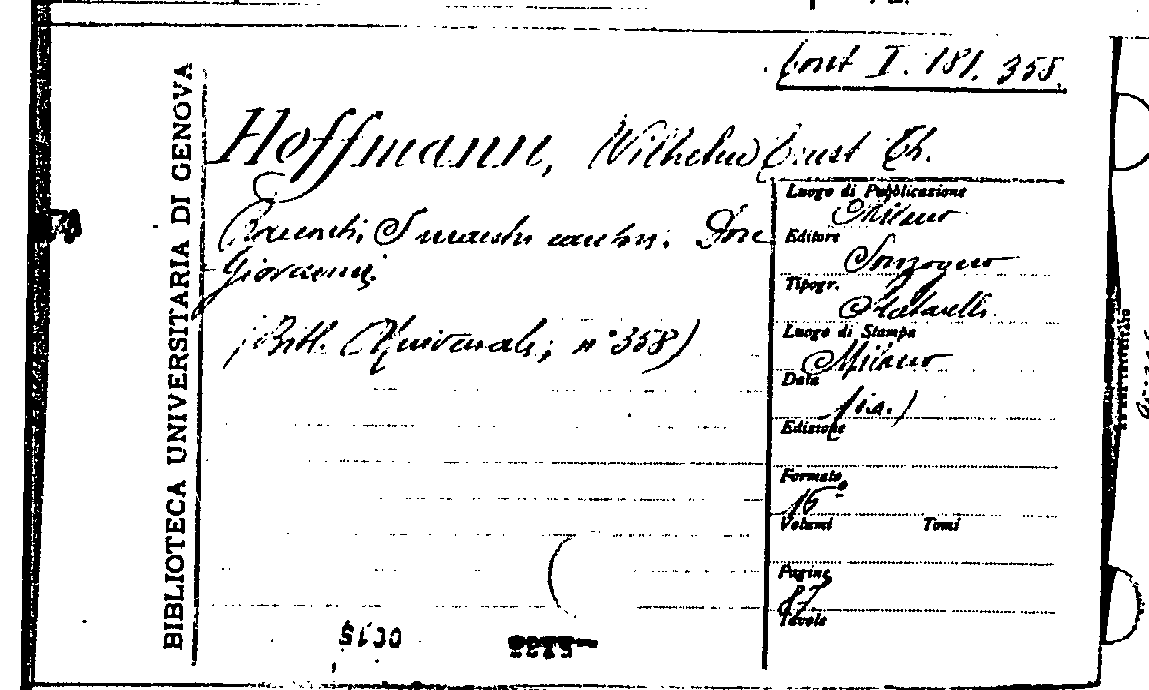 BIBLIOTECA UNIVERSITARIA DI GENOVA
I. 181. 358.
Hoffmann, Wilhelm Ernst Th.
Racconti. I maestri cantori. Don
Giovanni.
(Bibl. Universale; n° 358)
Luogo di Pubblicazione
Milano
Editore
Sonzogno
Tipogr.
Luogo di Stampa
Milano
Data
Edizione
Formato
16°
Volumi Tomi
Pagine
87
Tavole